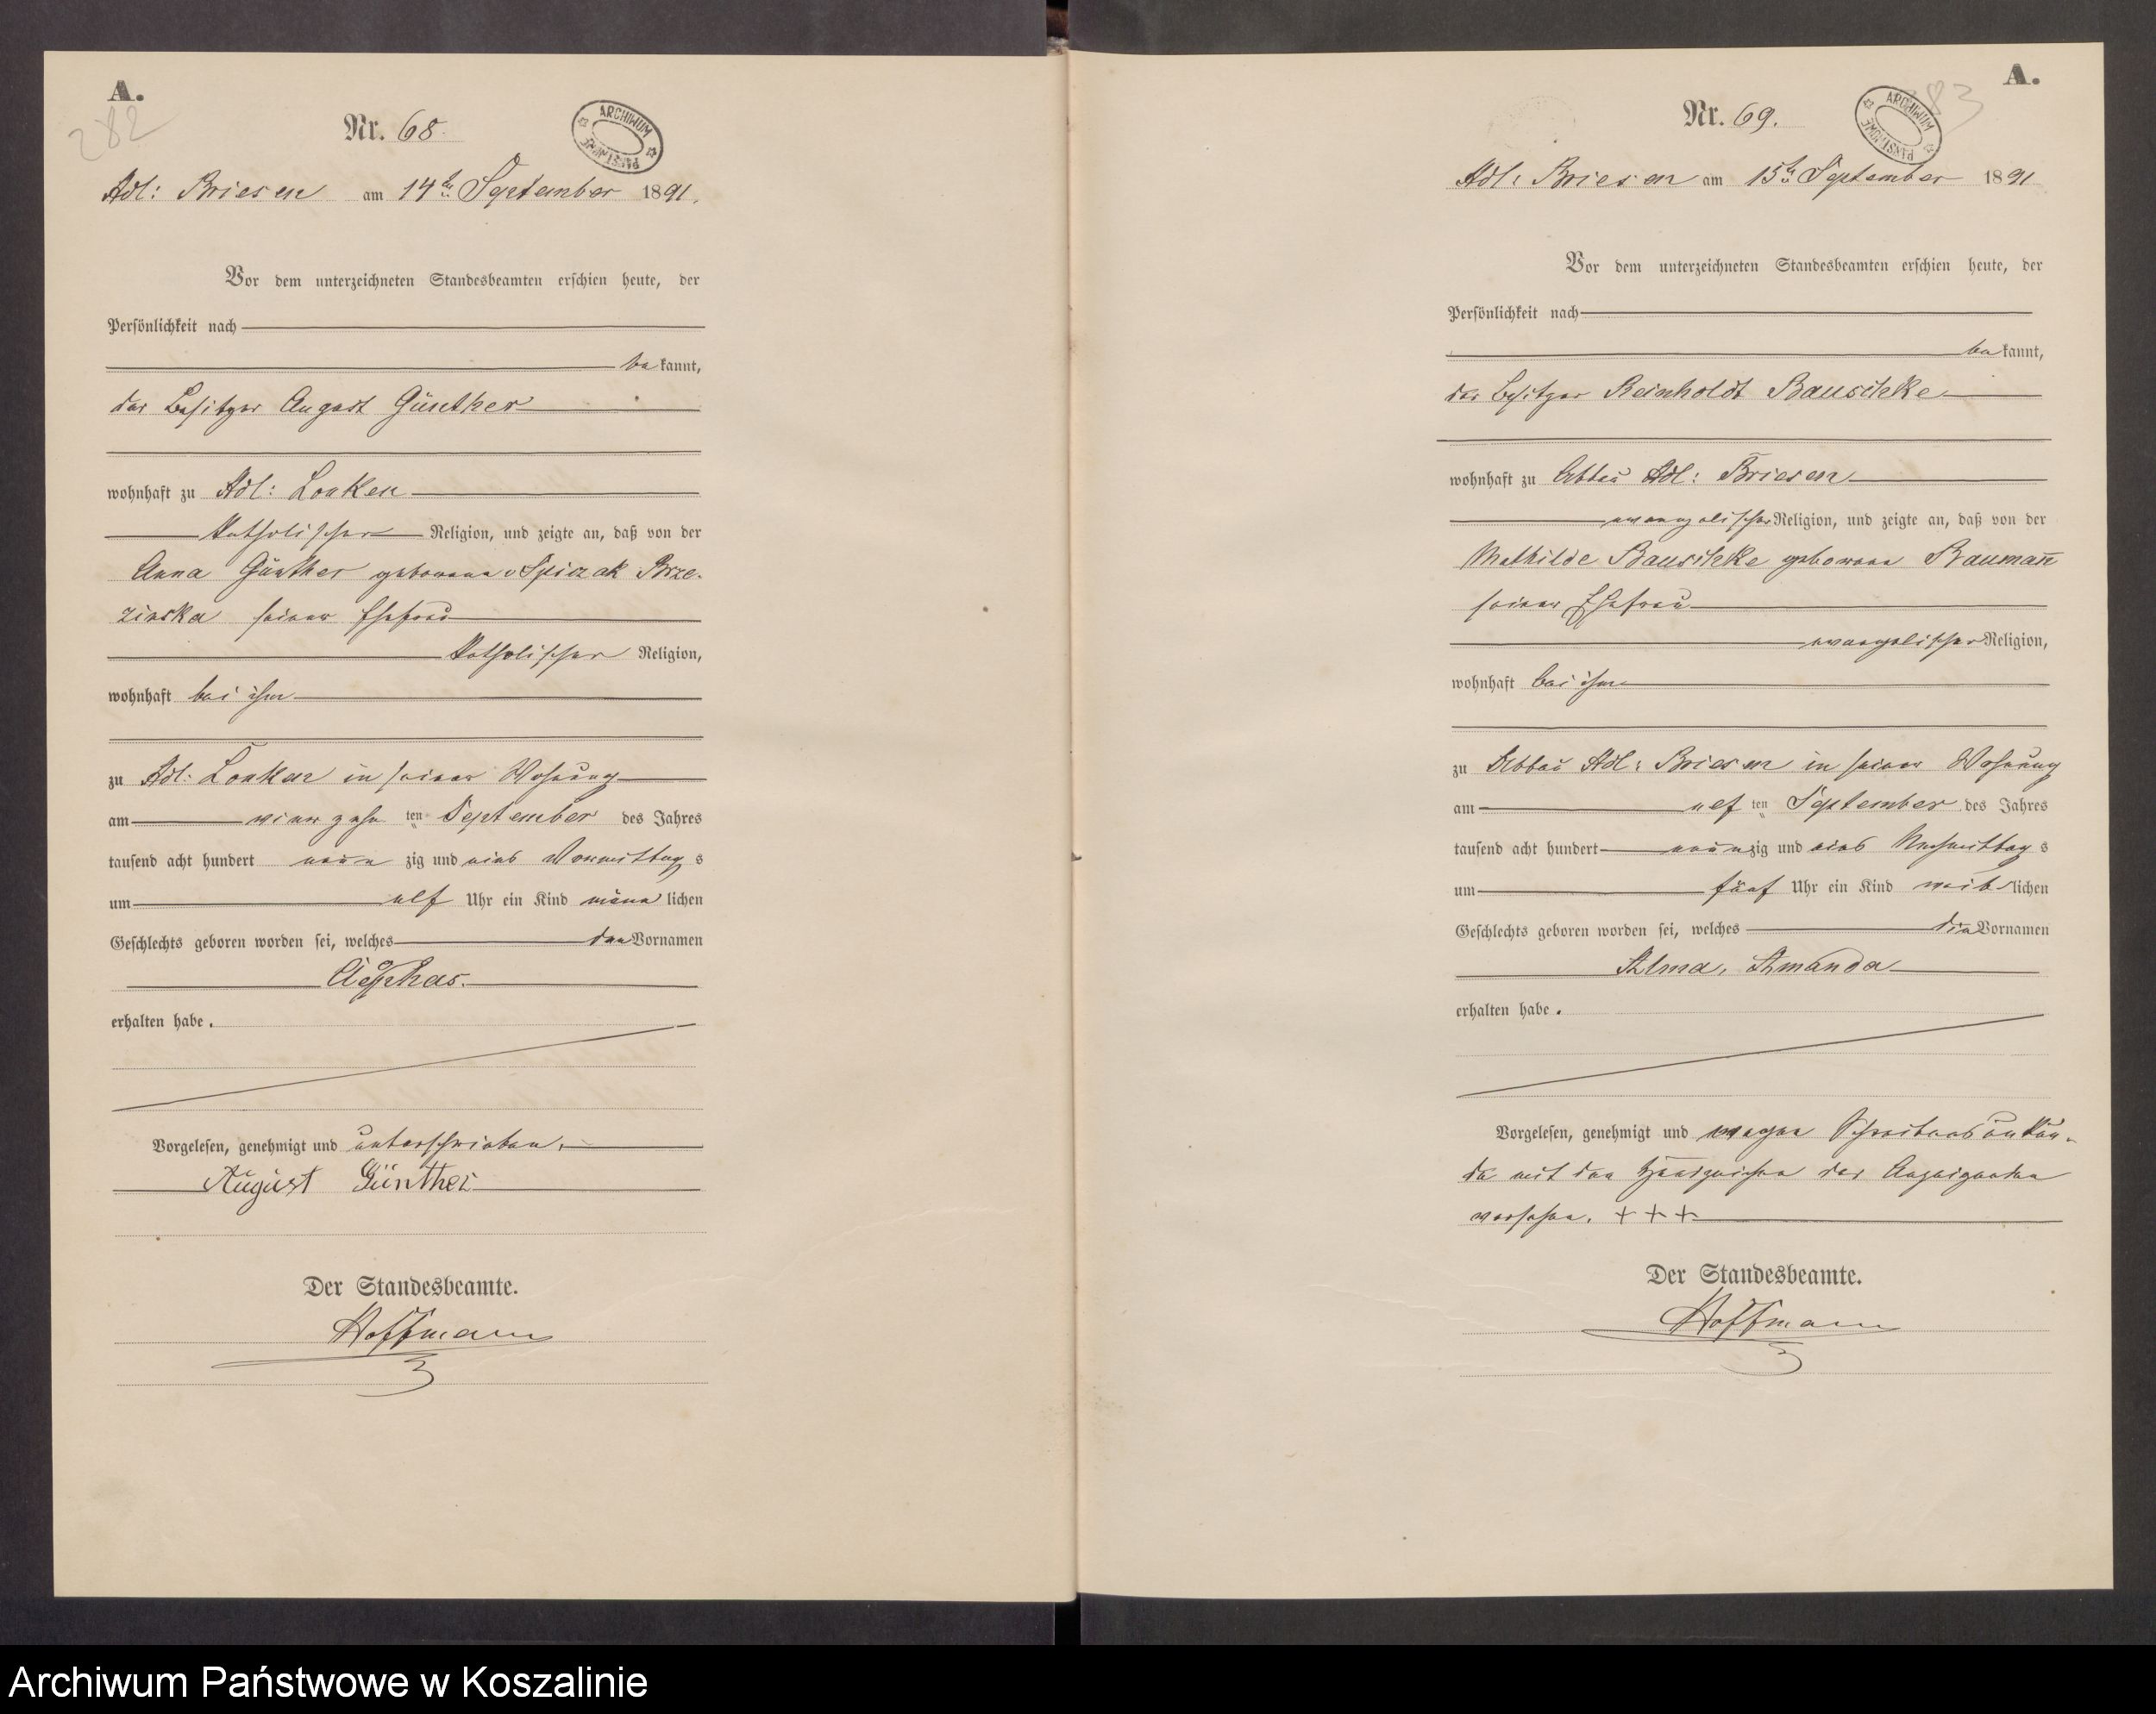 A.
282
Nr. 68.
ARCHIWUM PAŃSTWOWE
Adl: Briesen am 14ten September 1891.
Vor dem unterzeichneten Standesbeamten erschien heute, der
Persönlichkeit nach
be kannt,
der Besitzer August Günther
wohnhaft zu Adl: Lonken
Katholischer Religion, und zeigte an, daß von der
Anna Günther geborene v Spiczak Brze-
zinska seiner Ehefrau
Katholischer Religion,
wohnhaft bei ihm
zu Adl: Lonken in seiner Wohnung
am vierzehn ten September des Jahres
tausend acht hundert neun zig und eins Vormittag s
um elf Uhr ein Kind männ lichen
Geschlechts geboren worden sei, welches den Vornamen
erhalten habe.
Vorgelesen, genehmigt und unterschrieben.
August Günther
Der Standesbeamte.
Hoffmann
A.
283
Nr. 69.
ARCHIWUM PAŃSTWOWE
Adl: Briesen am 15ten September 1891
Vor dem unterzeichneten Standesbeamten erschien heute, der
Persönlichkeit nach
be kannt,
der Besitzer Reinholdt Bauschke
wohnhaft zu Abbau Adl: Briesen
evangelischer Religion, und zeigte an, daß von der
Mathilde Bauschke geborene Baumann̄
seiner Ehefrau
evangelischer Religion,
wohnhaft bei ihm
zu Abbau Adl: Briesen in seiner Wohnung
am elf ten September des Jahres
tausend acht hundert neun zig und eins Nachmittag s
um fünf Uhr ein Kind weib lichen
Geschlechts geboren worden sei, welches die Vornamen
Alma, Amanda
erhalten habe.
Vorgelesen, genehmigt und wegen Schreibensunkun-
de mit den Handzeichen des Anzeigenden
versehen. +++
Der Standesbeamte.
Hoffmann
Archiwum Państwowe w Koszalinie